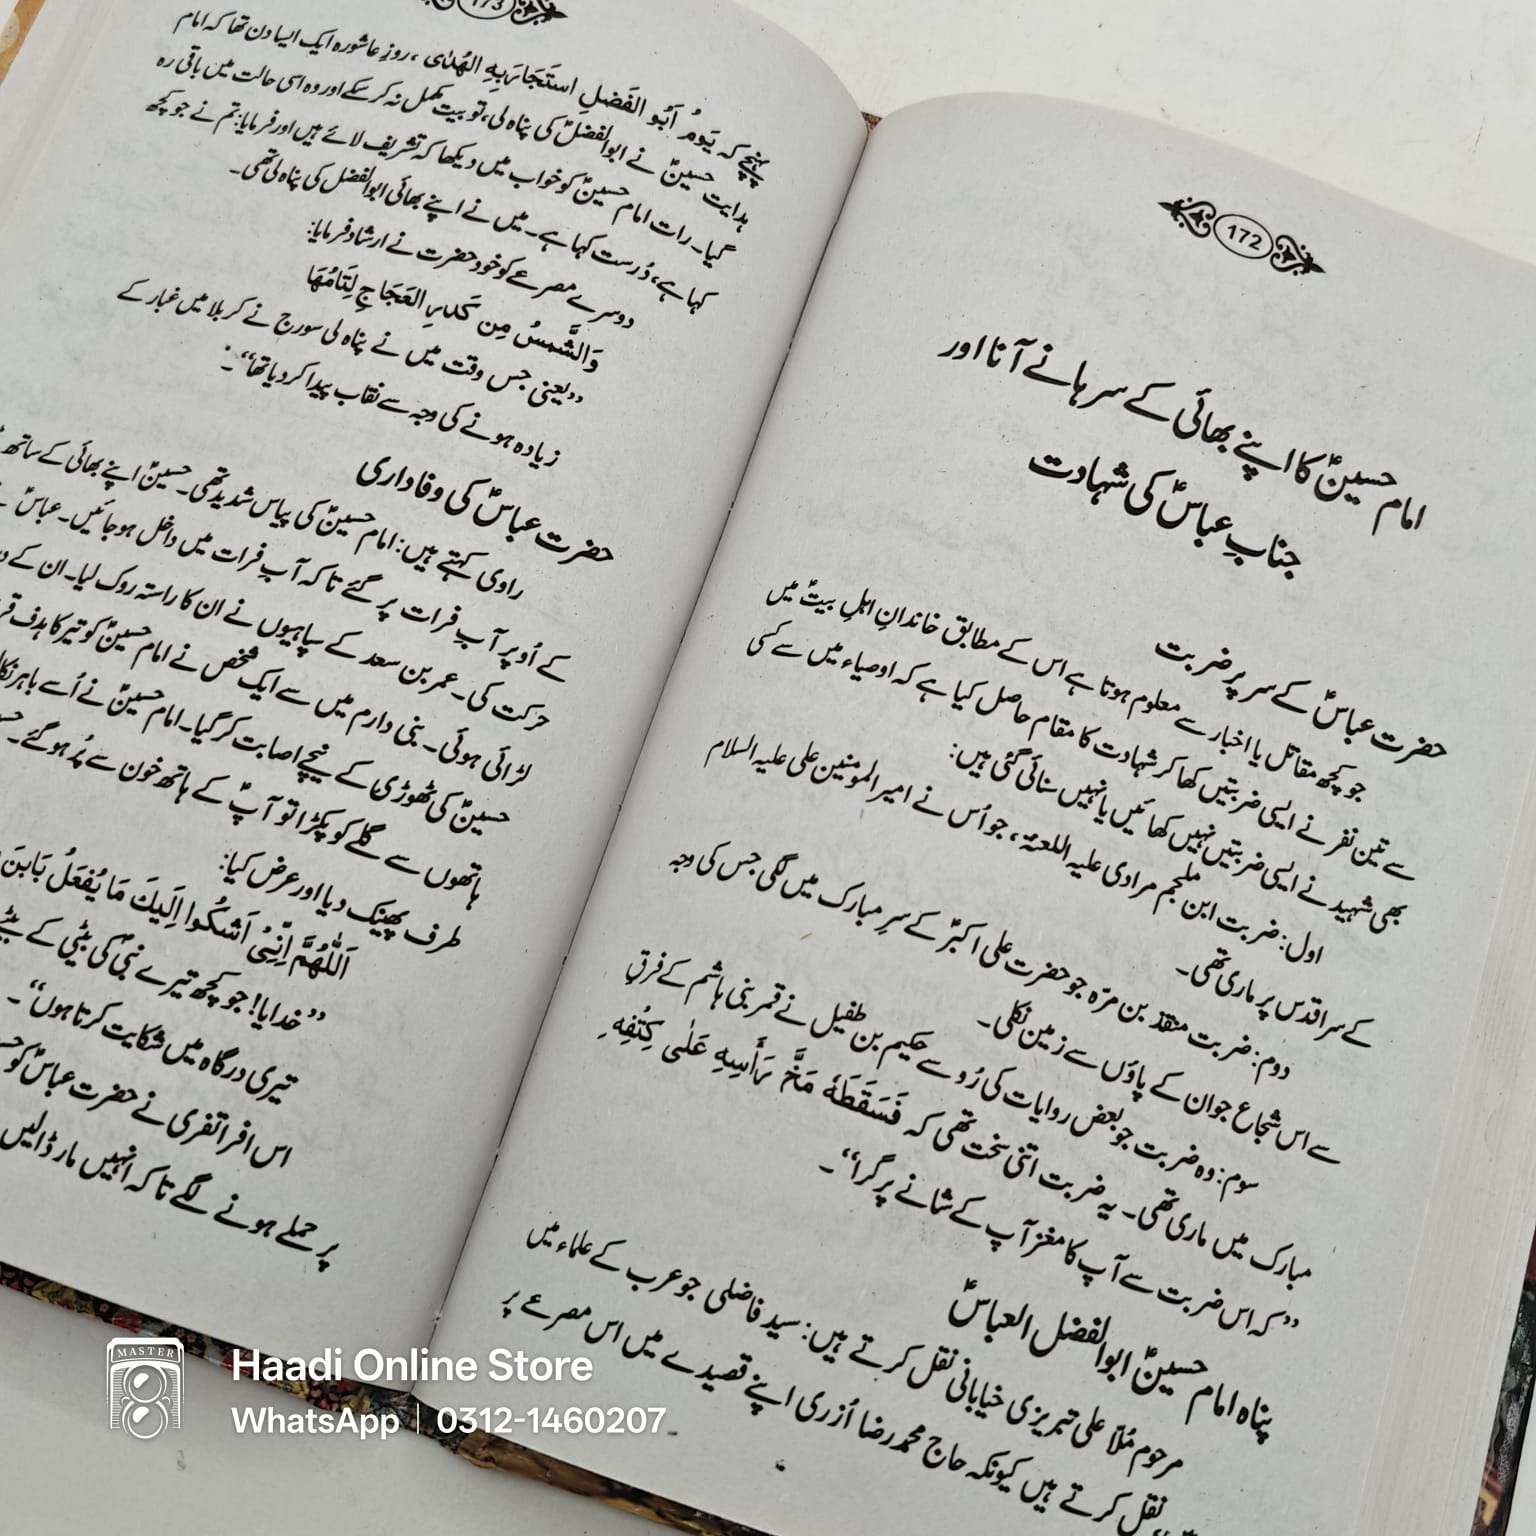 172
امام حسینؑ کا اپنے بھائی کے سرہانے آنا اور
جنابِ عباسؑ کی شہادت
حضرت عباسؑ کے سر پر ضربت
جو کچھ مقاتل یا اخبار سے معلوم ہوتا ہے اس کے مطابق خاندانِ اہلِ بیتؑ میں
سے تین نفر نے ایسی ضربتیں کھا کر شہادت کا مقام حاصل کیا ہے کہ اوصیاء میں سے کسی
بھی شہید نے ایسی ضربتیں نہیں کھائیں یا نہیں سنائی گئی ہیں:
اول: ضربت ابن ملجم مرادی علیہ اللعنۃ، جو اُس نے امیر المومنین علی علیہ السلام
کے سر اقدس پر ماری تھی۔
دوم: ضربت منقذ بن مرہ جو حضرت علی اکبرؑ کے سرِ مبارک میں لگی جس کی وجہ
سے اس شجاع جوان کے پاؤں سے زمین نکلی۔
سوم: وہ ضربت جو بعض روایات کی رُو سے حکیم بن طفیل نے قمر بنی ہاشم کے فرقِ
مبارک میں ماری تھی۔ یہ ضربت اتنی سخت تھی کہ فَسَقَطَهُ مَخَّ رَأسِهِ عَلٰی كِتُفِهِ
”کہ اس ضربت سے آپ کا مغز آپ کے شانے پر گرا“۔
پناہ امام حسینؑ ابوالفضل العباسؑ
مرحوم مُلا علی تبریزی خیابانی نقل کرتے ہیں: سید فاضلی جو عرب کے علماء میں
نقل کرتے ہیں کیونکہ حاج محمد رضا اُزری اپنے قصیدے میں اس مصرعے پر
173
پہنچے کہ يَومُ اَبُو الفَضلِ استَجَارَ بِهِ الهُدٰی، روزِ عاشورہ ایک ایسا دن تھا کہ امام
ہدایت حسینؑ نے ابوالفضلؑ کی پناہ لی، تو بیت مکمل نہ کر سکے اور وہ اسی حالت میں باقی رہ
گیا۔ رات امام حسینؑ کو خواب میں دیکھا کہ تشریف لائے ہیں اور فرمایا: تم نے جو کچھ
کہا ہے، دُرست کہا ہے۔ میں نے اپنے بھائی ابوالفضل کی پناہ لی تھی۔
دوسرے مصرعے کو خود حضرت نے ارشاد فرمایا:
وَالشَّمسُ مِن كَدِرِ العَجَاجِ لِثَامُهَا
”یعنی جس وقت میں نے پناہ لی سورج نے کربلا میں غبار کے
زیادہ ہونے کی وجہ سے نقاب پیدا کر دیا تھا“۔
حضرت عباسؑ کی وفاداری
راوی کہتے ہیں: امام حسینؑ کی پیاس شدید تھی۔ حسینؑ اپنے بھائی کے ساتھ
کے اُوپر آبِ فرات پر گئے تاکہ آبِ فرات میں داخل ہو جائیں۔ عباسؑ
حرکت کی۔ عمر بن سعد کے سپاہیوں نے ان کا راستہ روک لیا۔ ان کے
لڑائی ہوئی۔ بنی دارم میں سے ایک شخص نے امام حسینؑ کو تیر کا ہدف
حسینؑ کی ٹھوڑی کے نیچے اصابت کر گیا۔ امام حسینؑ نے اُسے باہر
ہاتھوں سے گلے کو پکڑا تو آپؑ کے ہاتھ خون سے پُر ہو گئے۔
طرف پھینک دیا اور عرض کیا:
اَللّٰهُمَّ اِنِّی اَشكُوا اِلَيكَ مَا يُفعَلُ بَابنَ
”خدایا! جو کچھ تیرے نبیؐ کی بیٹی کے بیٹے
تیری درگاہ میں شکایت کرتا ہوں“۔
اس افراتفری نے حضرت عباسؑ کو
پر حملے ہونے لگے تاکہ انہیں مار ڈالیں
MASTER
Haadi Online Store
WhatsApp | 0312-1460207